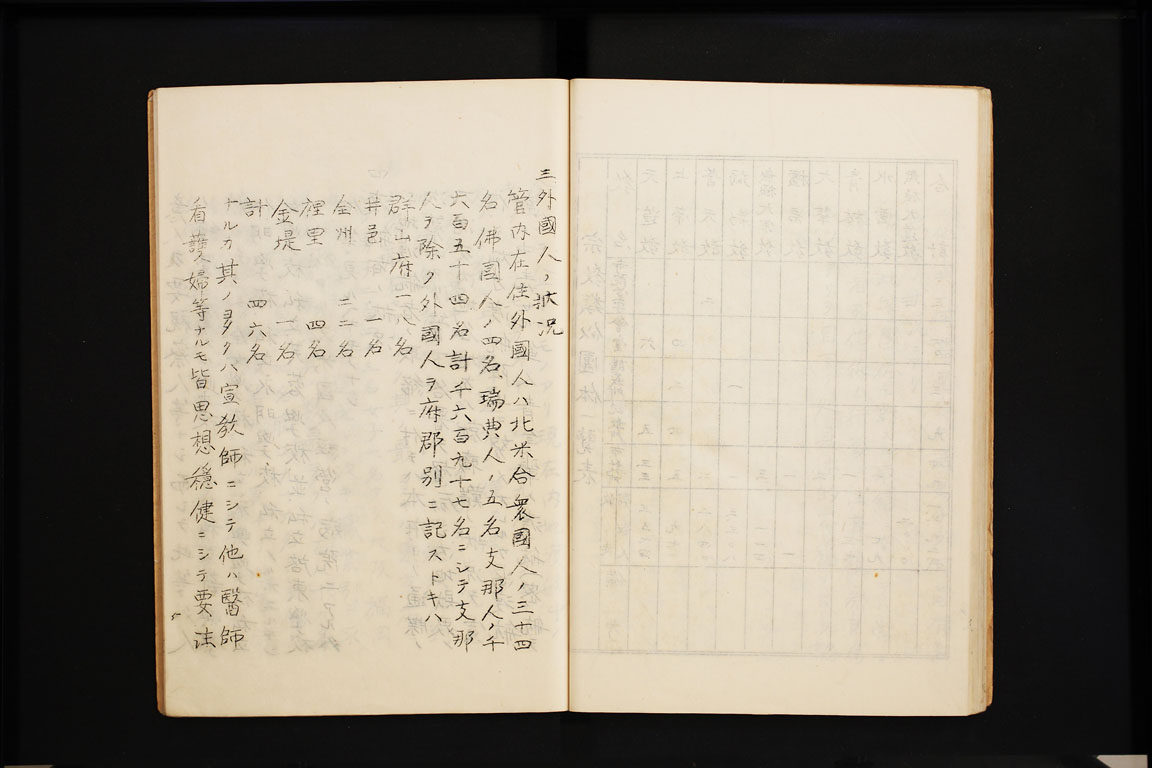 三外國人ノ狀況
管内在住外國人ハ北米合衆國人ノ三十四
名佛國人ノ四名、瑞典人ノ五名支那人ノ千
六百五十四名計千六百九十七名ニシテ支那
人ヲ除ク外國人ヲ府郡別ニ記ストキハ
群山府一八名
井邑 一名
全州 二二名
裡里 四名
金堤 一名
計 四六名
ナルカ其ノ多クハ宣敎師ニシテ他ハ醫師
看護婦等ナルモ皆思想穩健ニシテ要注